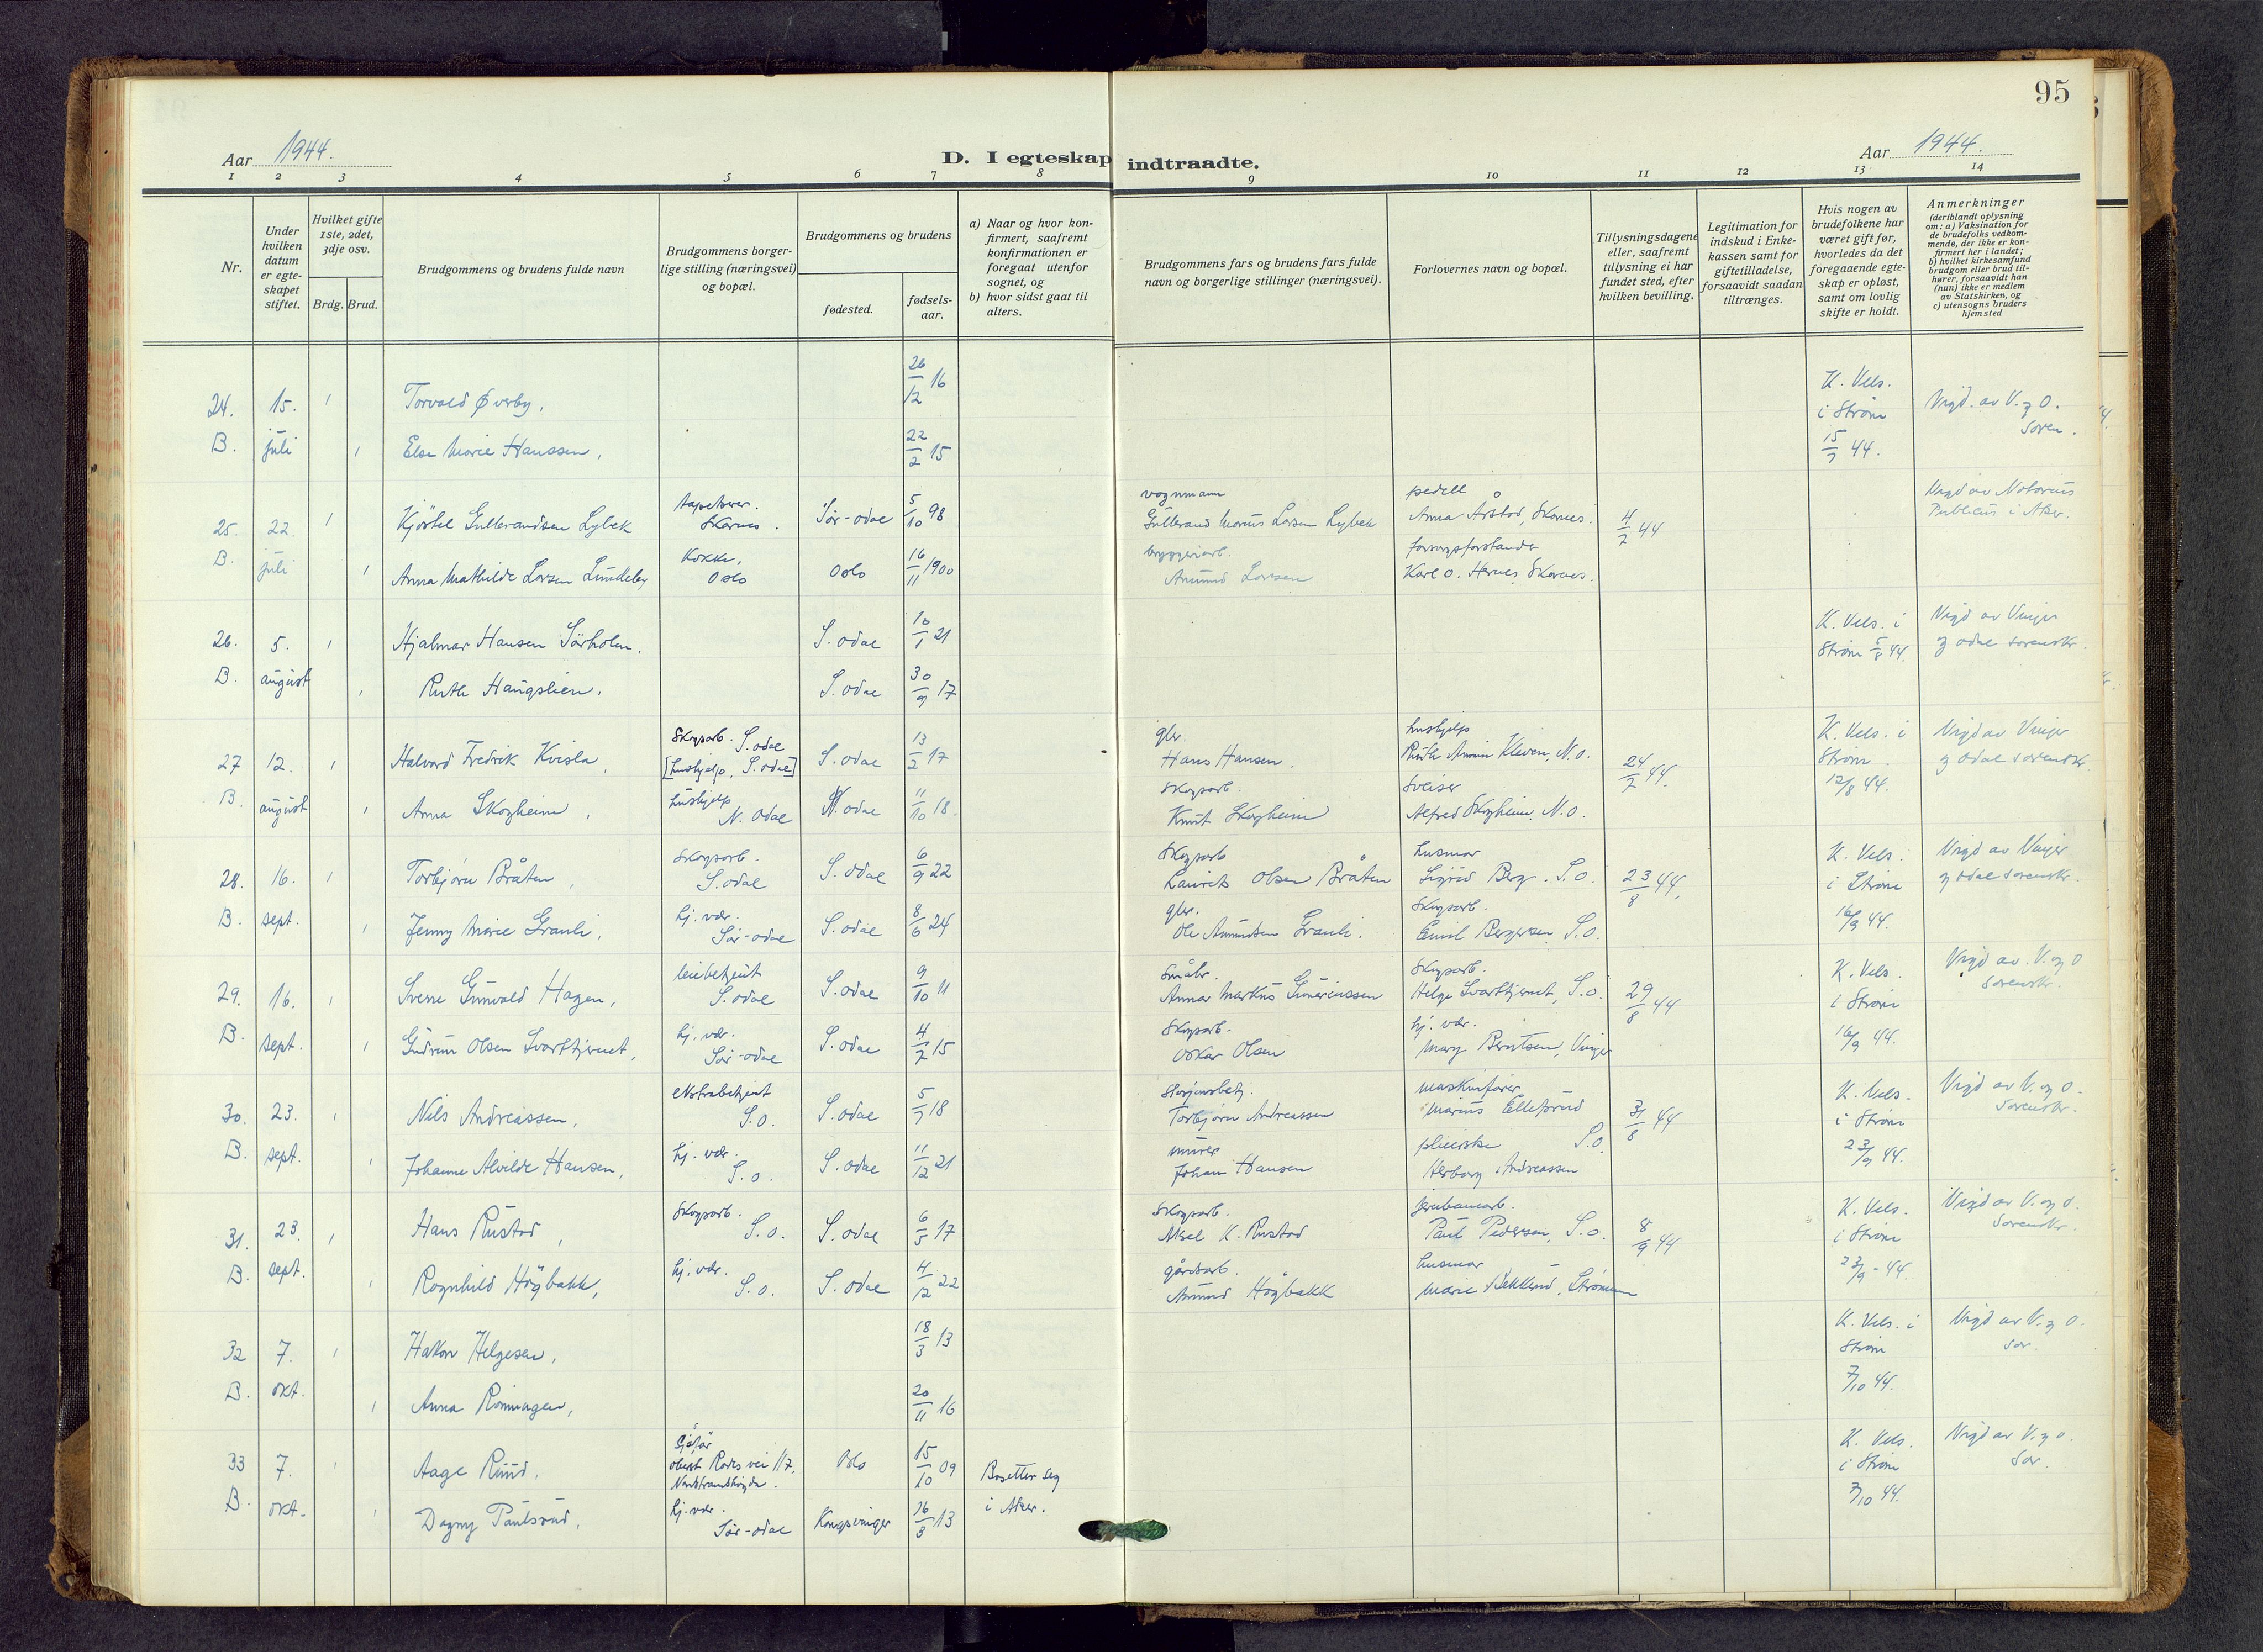 95
Aar 1944.
D. I egteskap indtraadte.
Aar 1944.
1 2 3 4 5 6 7 8 9 10 11 12 13 14
Nr.
Under hvilken datum er egteskapet stiftet.
Hvilket gifte 1ste, 2det, 3dje osv.
Brdg. Brud.
Brudgommens og brudens fulde navn
Brudgommens borgerlige stilling (næringsvei) og bopæl.
Brudgommens og brudens
fødested.
fødselsaar.
a) Naar og hvor konfirmert, saafremt konfirmationen er foregaat utenfor sognet, og
b) hvor sidst gaat til alters.
Brudgommens fars og brudens fars fulde navn og borgerlige stillinger (næringsvei).
Forlovernes navn og bopæl.
Tillysningsdagene eller, saafremt tillysning ei har fundet sted, efter hvilken bevilling.
Legitimation for indskud i Enkekassen samt for giftetilladelse, forsaavidt saadan tiltrænges.
Hvis nogen av brudefolkene har været gift før, hvorledes da det foregaaende egteskap er opløst, samt om lovlig skifte er holdt.
Anmerkninger
(deriblandt oplysning om: a) Vaksination for de brudefolks vedkommende, der ikke er konfirmert her i landet;
b) hvilket kirkesamfund brudgom eller brud tilhører, forsaavidt han (hun) ikke er medlem av Statskirken, og
c) utensogns bruders hjemsted
24. 15. 1 Torvald Øverby, 26/12 16 K. Vels. i Strøm 15/7 44. Vigd. av V. og O. soren.
B. juli 1 Else Marie Hanssen, 22/2 15
25. 22. 1 Kjöstel Gulbrandsen Lybek tapetserer. Skarnes. Sør-odal 5/10 98 vognmann Gulbrand Marius Larsen Lybek pedell Anna Årstad, Skarnes. 4/7 44 Vigd av Notarius Publicus i Aker.
B. juli 1 Anna Mathilde Larsen Lundeby Kokke, Oslo Oslo 16/11 1900 bryggeriarb. Amund Larsen forsorgsforstander Karl O. Hernes, Skarnes.
26. 5. 1 Hjalmar Hansen Sørholm. S. odal 10/1 21 K. Vels. i Strøm 5/8 44. Vigd av Vinger og odal sorenskr.
B. august 1 Ruth Haugslien. S. odal 30/9 17
27 12. 1 Halvard Fredrik Kvisla, Skogsarb. S. odal S. odal 13/2 17 gbr. Hans Hansen. hushjelp Ruth Kleven, N. O. 24/7 44. K. Vels. i Strøm. 12/8 44. Vigd av Vinger og odal sorenskr.
[hushjelp, S. odal]
B. august 1 Anna Skogheim, hushjelp N. odal N. odal 11/10 18. Skogsarb. Knut Skogheim Sveiser Alfred Skogheim, N. O.
28. 16. 1 Torbjørn Bråten, Skogsarb. S. odal S. odal 6/9 22 Skogsarb Laurits Olsen Bråten husmor Sigrid Berg. S. O. 23/8 44, K. Vels. i Strøm 16/9 44. Vigd av Vinger og odal sorenskr.
B. sept. 1 Jenny Marie Granli, hj. vær. Sør-odal S. odal 8/6 24 gbr. Ole Amundsen Granli. Skogsarb. Emil Bergersen, S. O.
29. 16. 1 Sverre Gunvald Hagen, leiebetjent S. odal S. odal 9/10 11 Småbr. Annar Markus Guneriussen Skogsarb. Helge Svarttjernet, S. O. 29/8 44 K. Vels. i Strøm 16/9 44. Vigd av. V. og O sorenskr.
B. sept. 1 Gudrun Olsen Svarttjernet, hj. vær. Sør-odal S. odal 4/7 15 Skogsarb. Oskar Olsen hj. vær. Mary Berntsen, Vinger
30. 23. 1 Nils Andreassen, ekstrabetjent S. O. S. odal 5/7 18 Stasjonsbetj. Torbjørn Andreassen maskinfører Marius Ellefsrud 31/8 44 K. Vels. i Strøm 23/9 44. Vigd av V. og O. sorenskr.
B. sept. 1 Johanne Alvilde Hansen, hj. vær. S. O. S. odal 11/12 21 murer Johan Hansen pleierske S. O. Herborg Andreassen
31. 23. 1 Hans Rustad, Skogsarb. S. O. S. odal 6/5 17 Skogsarb. Aksel K. Rustad jernbanearb. Paul Pedersen, S. O. 8/9 44 K. Vels. i Strøm 23/9 - 44. Vigd av V. og O. sorenskr.
B. sept. 1 Ragnhild Högbakk, hj. vær. S. O. S. odal 4/12 22 gårdsarb. Amund Högbakk husmor Marie Bekklund, Strømmen
32 7. 1 Håkon Helgesen, 18/3 13 K. Vels. i Strøm 7/10 44. Vigd av V. og O. sor.
B. okt. 1 Anna Rönningen, 20/11 16
33 7. 1 Aage Ruud, Sjåfør oberst Rodes vei 117, Nordstrandhøgda. Oslo 15/10 09 Bosetter seg i Aker. K. Vels. i Strøm 7/10 44. Vigd av V. og O. sor.
B. okt. 1 Dagny Paulsrud, hj. vær. Sør-odal Kongsvinger 26/3 13